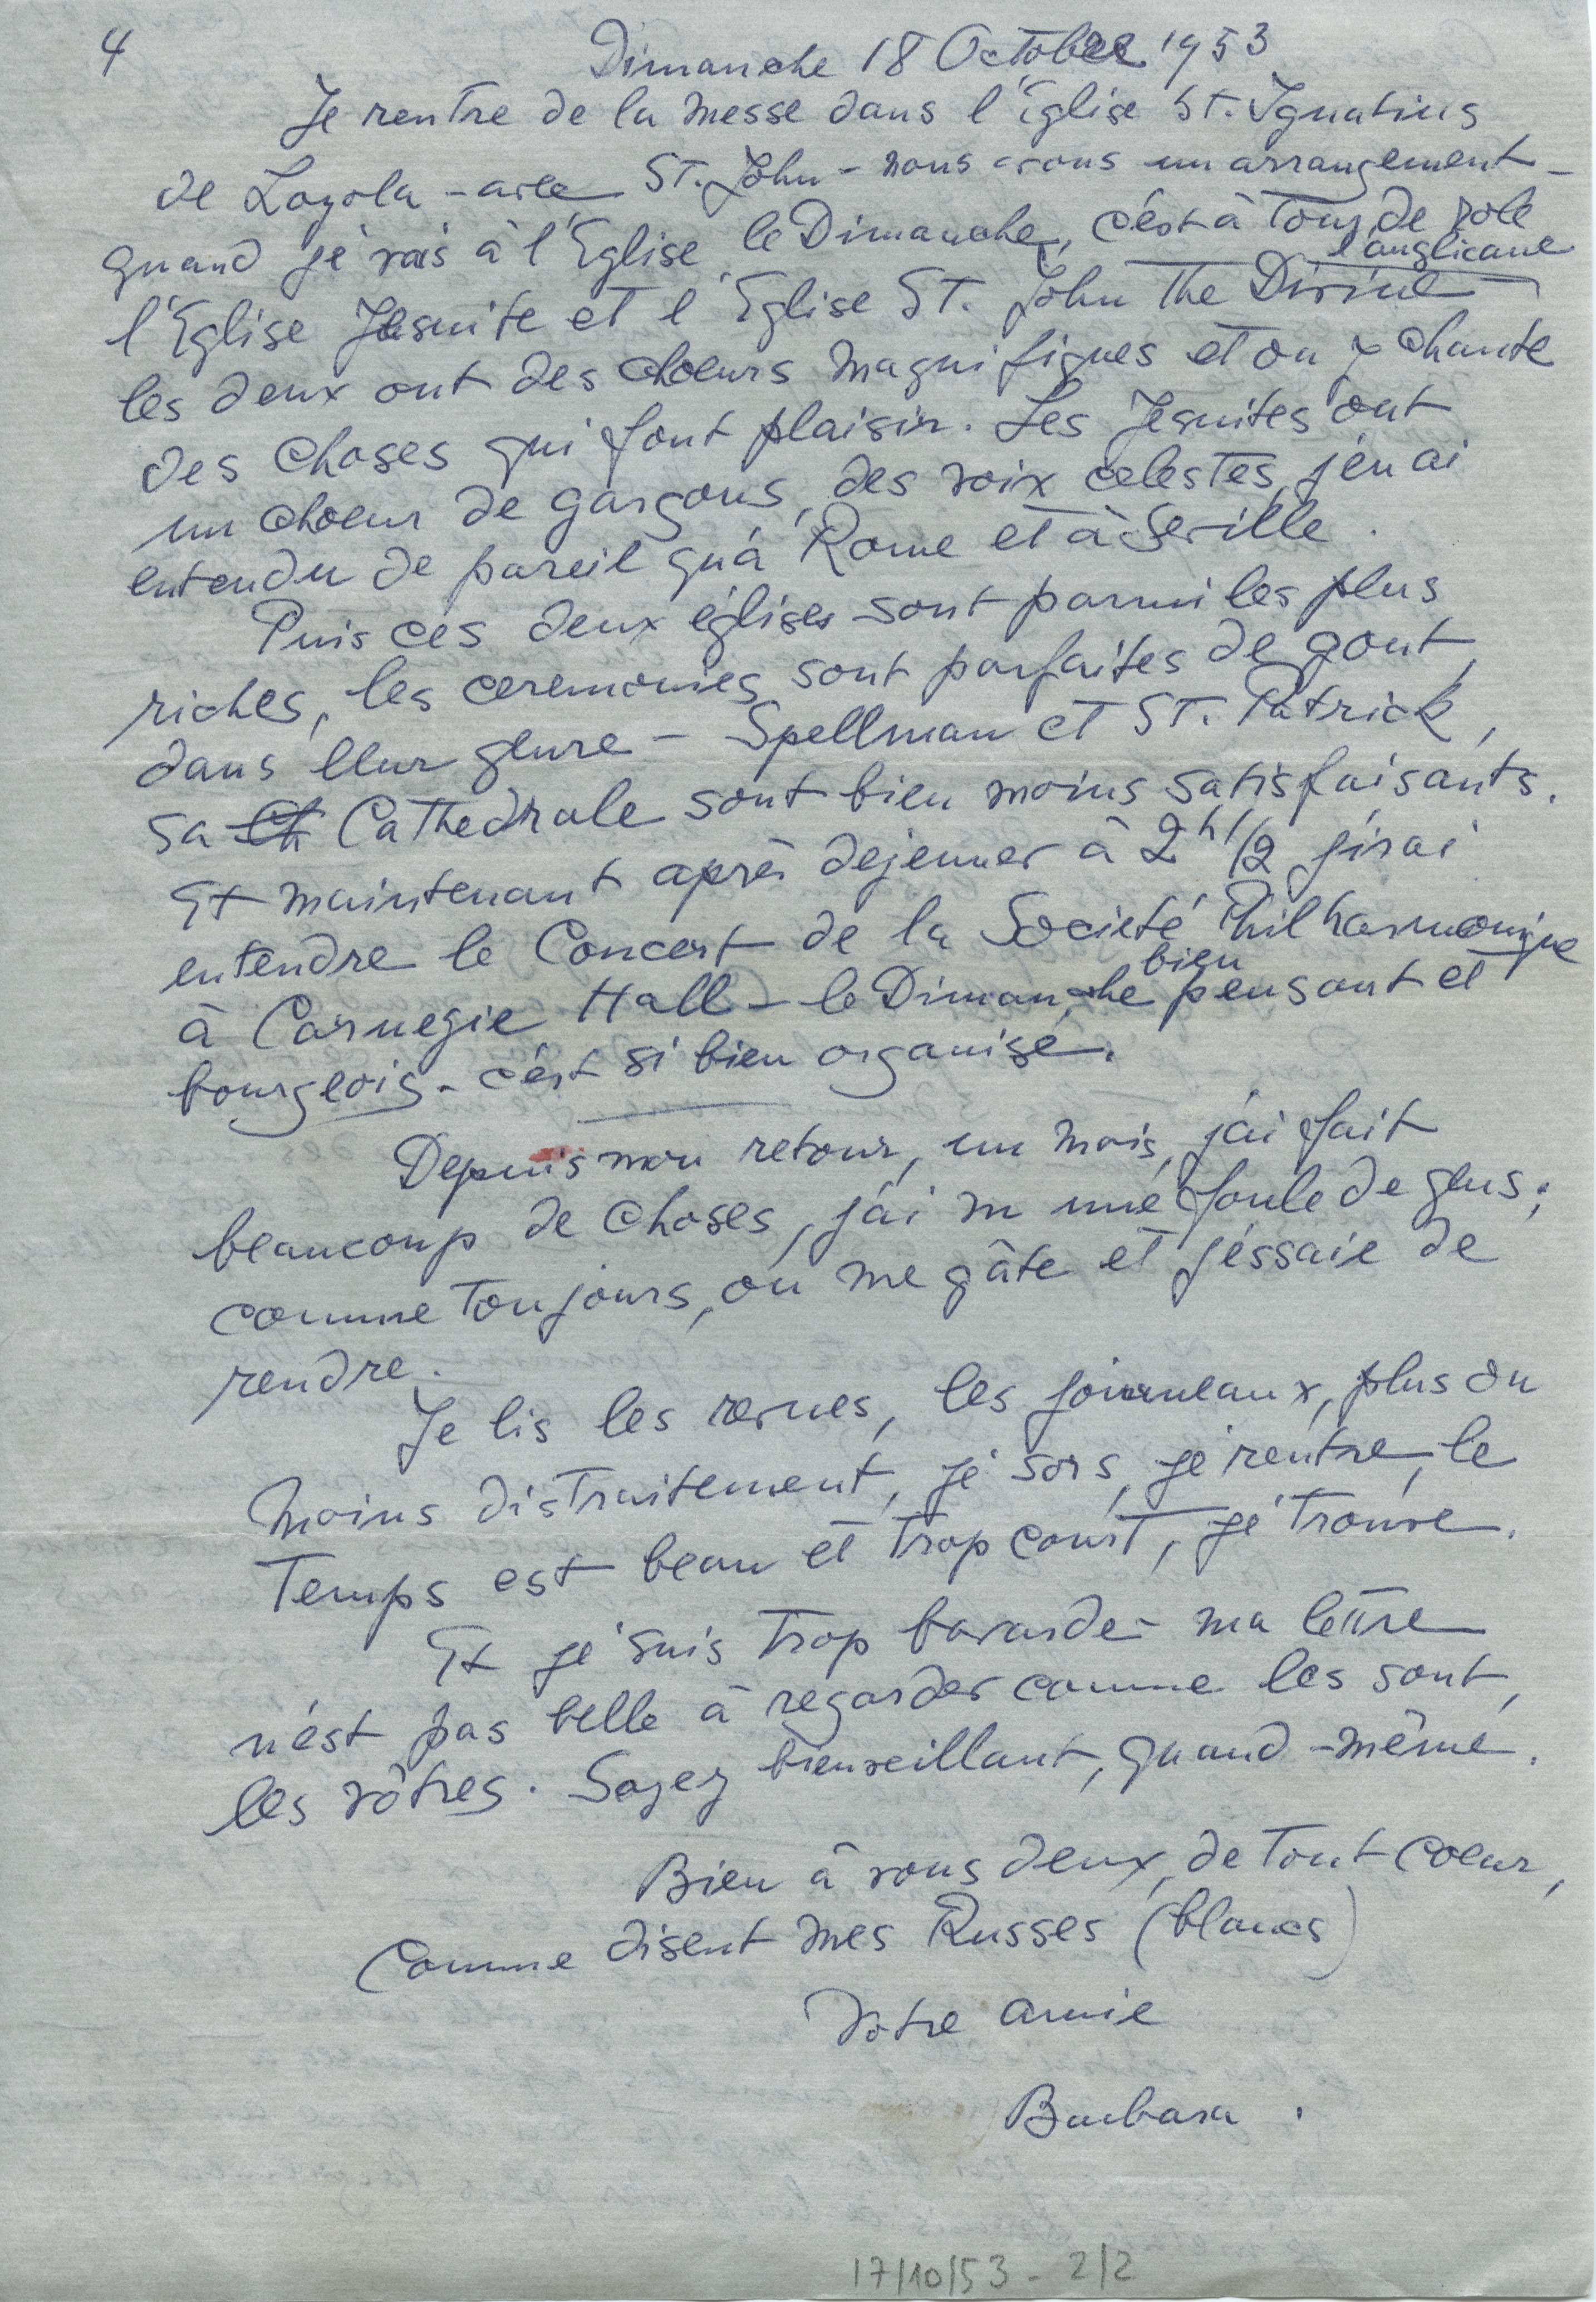 4
Dimanche 18 Octobre 1953
Je rentre de la messe dans l'Eglise St. Ignatius
de Loyola - avec St. John - nous avons un arrangement -
quand je vais à l'Eglise le Dimanche, c'est à tour de role
l'anglicane
l'Eglise Jesuite et l'Eglise St. John The Divine -
les deux ont des choeurs magnifiques et on y chante
des choses qui font plaisir. Les Jesuites ont
un choeur de garçons, des voix celestes, j'en ai
entendu de pareil qu'à Rome et à Seville.
Puis ces deux églises sont parmi les plus
riches, les ceremonies sont parfaites de gout,
dans leur genre - Spellman et St. Patrick,
sa Cathedrale sont bien moins satisfaisants.
Et maintenant après dejeuner à 2h 1/2 j'irai
entendre le Concert de la Societé Philharmonique
bien
à Carnegie Hall - le Dimanche pensant et
bourgeois - c'est si bien organisé.
Depuis mon retour, un mois, j'ai fait
beaucoup de choses, j'ai vu une foule de gens;
comme toujours, on me gâte et j'éssaie de
rendre.
Je lis les revues, les journeaux, plus ou
moins distraitement, je sors, je rentre, le
Temps est beau et trop court, je trouve.
Et je suis trop bavarde - ma lettre
n'est pas belle à regarder comme les sont,
les vôtres. Soyez bienveillant, quand-même.
Bien à vous deux, de tout coeur,
comme disent mes Russes (blancs)
Votre amie
Barbara.
17/10/53 - 2/2